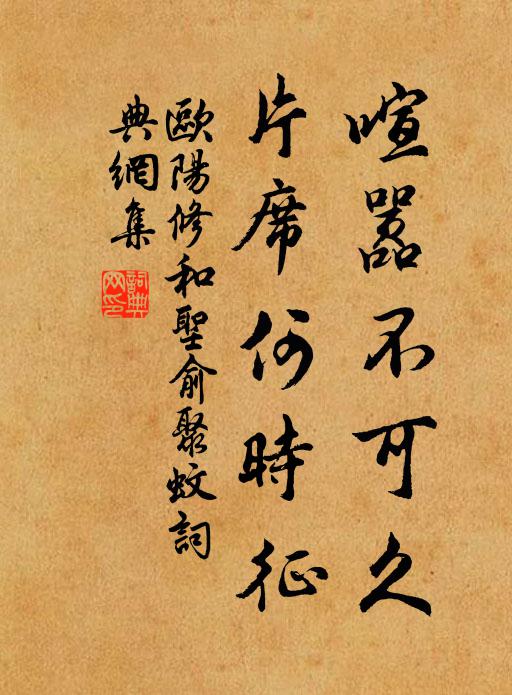 喧嚣不可久
片席何時征
歐陽修和聖俞聚蚊詞
典網集
詞典
网印